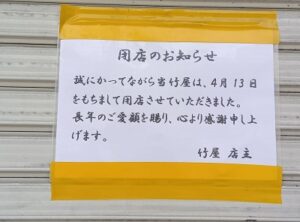 閉店のお知らせ
誠にかってながら当竹屋は、4月13日
をもちまして閉店させていただきました。
長年のご愛顧を賜り、心より感謝申し上
げます。
竹屋 店主